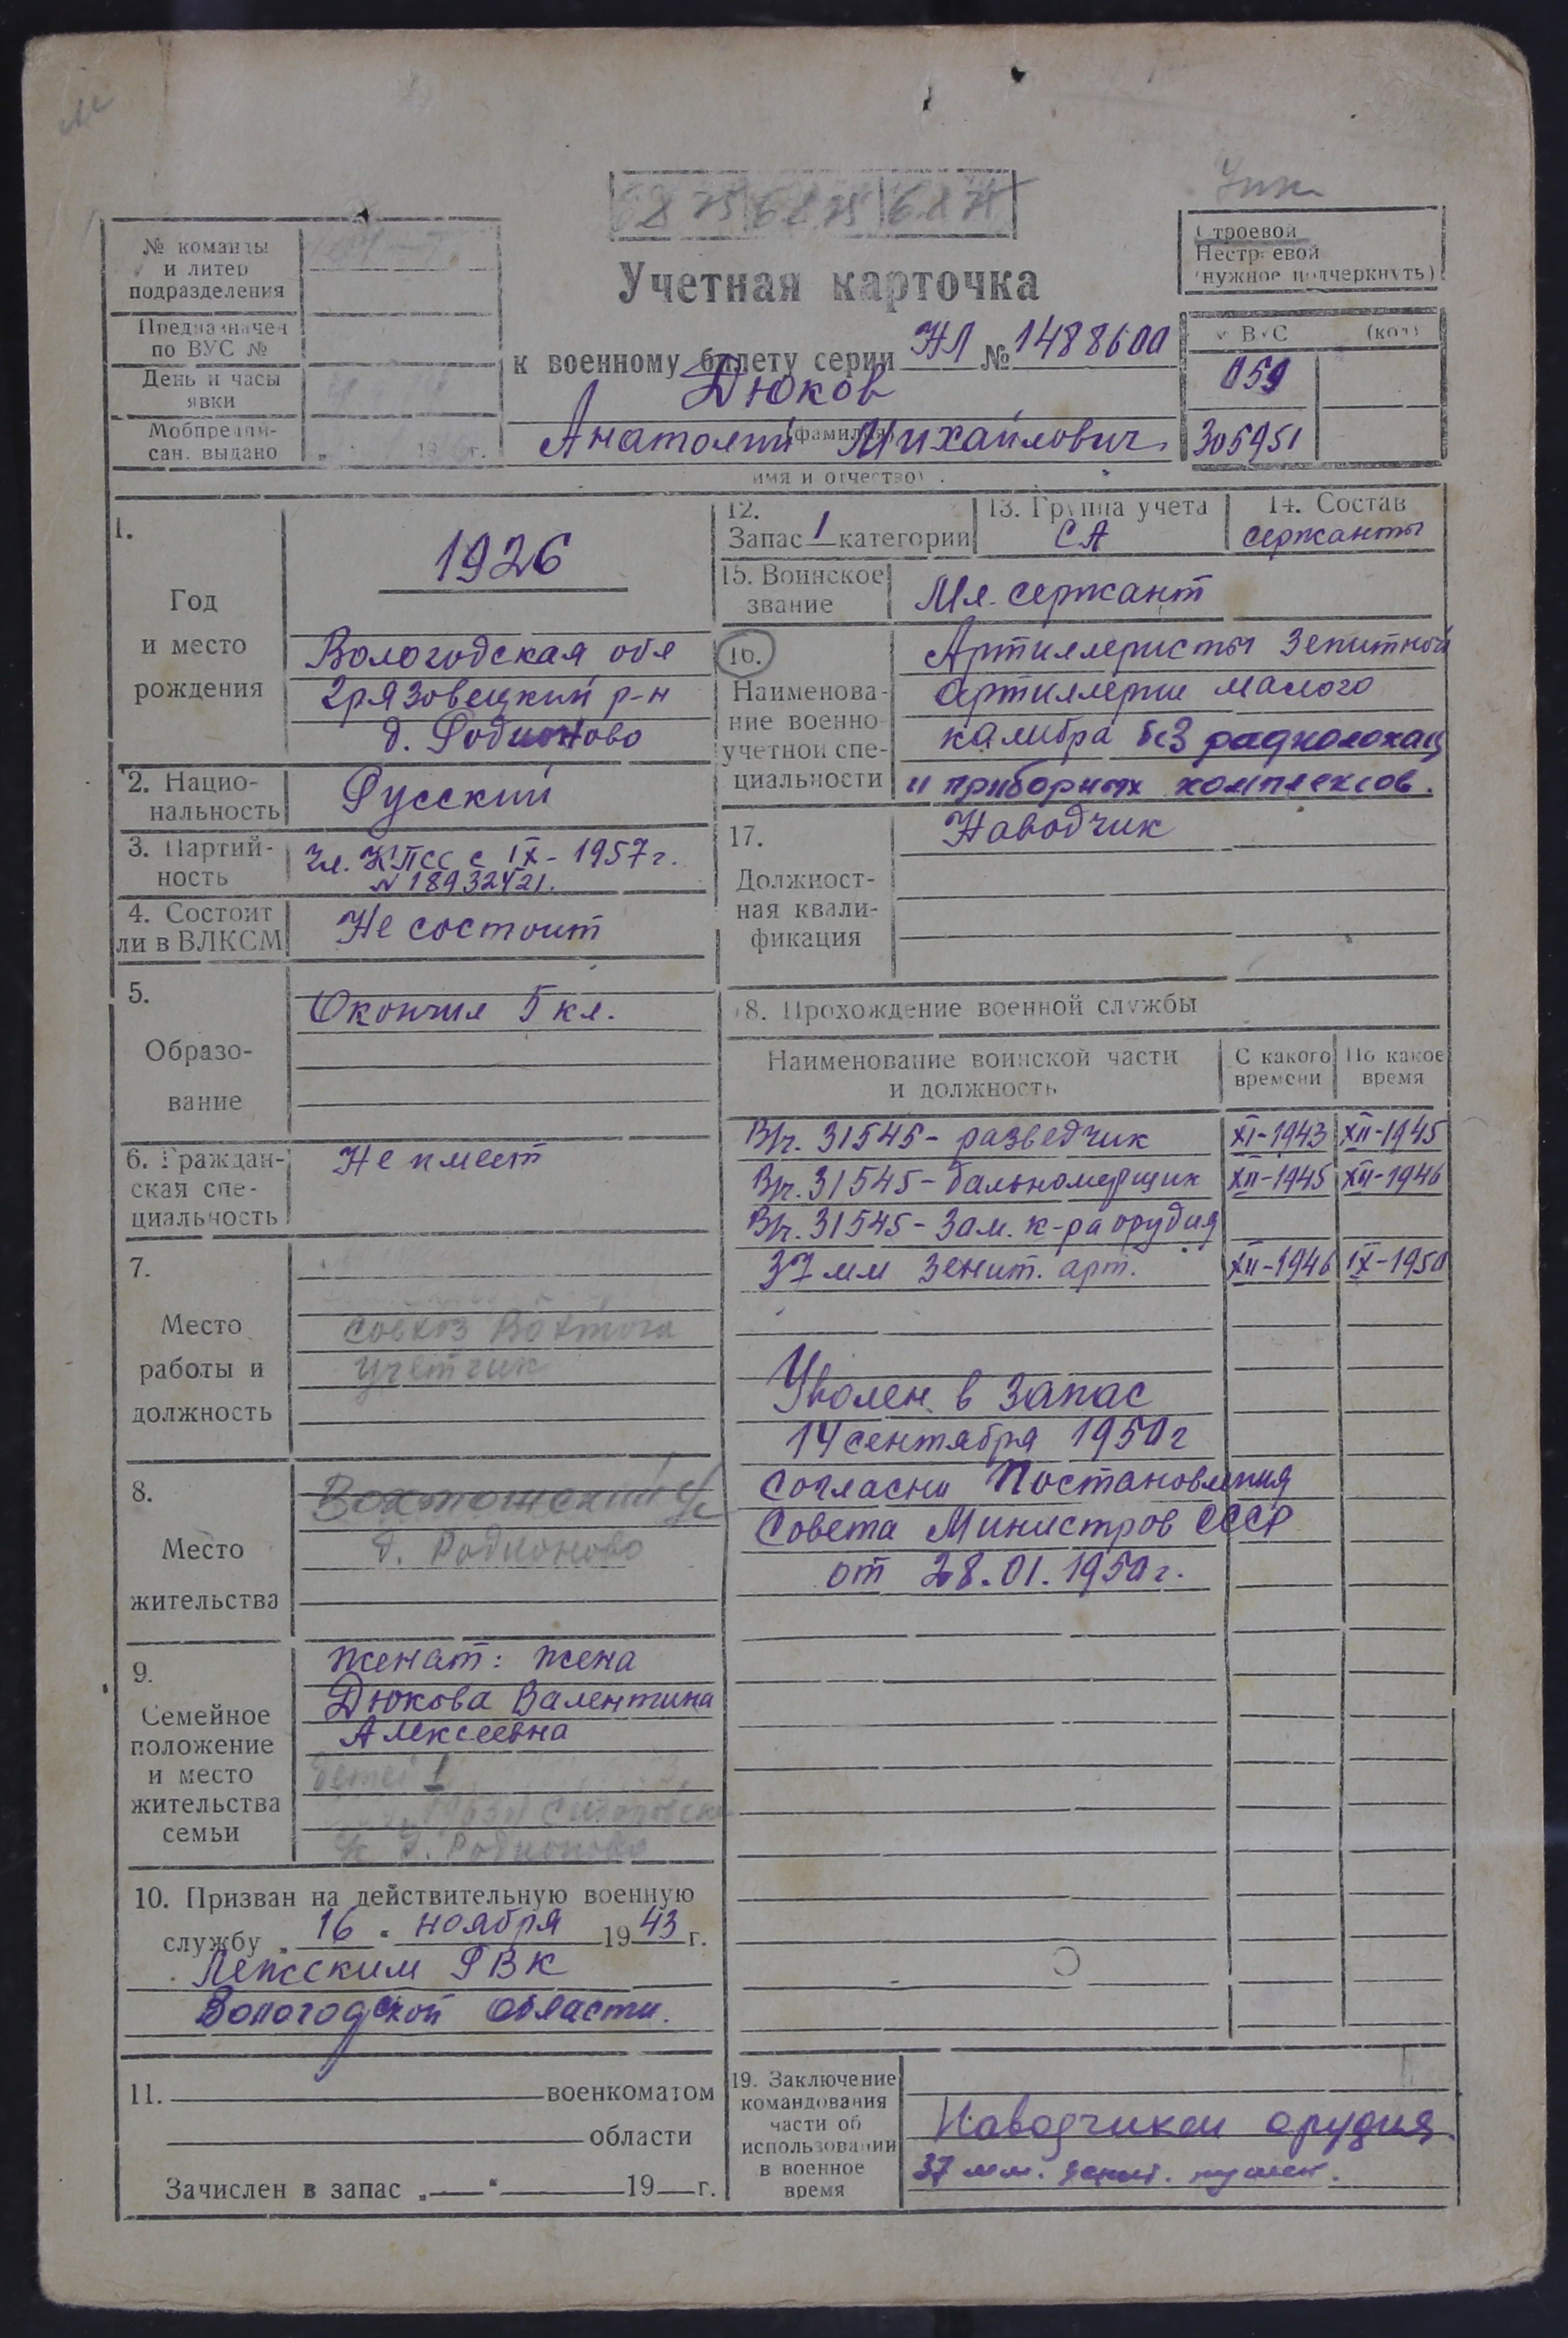 № команды
и литер
подразделения
Предназначен
по ВУС №
День и часы
явки
Мобпредпи-
сан. выдано
19 г.
6875 6875 6871
Учетная карточка
к военному билету серии НЛ № 1488600
Дюков
(фамилия)
Анатолий Михайлович
имя и отчество)
Строевой
Нестроевой
(нужное подчеркнуть)
№ ВУС (код)
059
305951
1.
Год
и место
рождения
1926
Вологодская обл
Грязовецкий р-н
д. Родионово
2. Нацио-
нальность
Русский
3. Партий-
ность
Чл. КПСС с IX-1957г.
№ 18932421.
4. Состоит
ли в ВЛКСМ
Не состоит
5.
Образо-
вание
Окончил 5 кл.
6. Граждан-
ская спе-
циальность
Не имеет
7.
Место
работы и
должность
совхоз Вохтога
учетчик
8.
Место
жительства
Вохтожский с/с
д. Родионово
9.
Семейное
положение
и место
жительства
семьи
женат: жена
Дюкова Валентина
Алексеевна
детей 1
д. Родионово
10. Призван на действительную военную
службу „16" ноября 1943 г.
Лежским РВК
Вологодской области.
11. военкоматом
области
Зачислен в запас „ " 19 г.
12.
Запас 1 категории
13. Группа учета
СА
14. Состав
сержанты
15. Воинское
звание
Мл. сержант
16.
Наименова-
ние военно
учетной спе-
циальности
Артиллеристы зенитной
артиллерии малого
калибра без радиолокац
и приборных комплексов.
17.
Должност-
ная квали-
фикация
Наводчик
18. Прохождение военной службы
Наименование воинской части
и должность
С какого
времени
По какое
время
В/ч. 31545 - разведчик XI-1943 XII-1945
В/ч. 31545 - дальномерщик XII-1945 XII-1946
В/ч. 31545 - Зам. к-ра орудия
37 мм зенит. арт. XII-1946 IX-1950
Уволен в запас
14 сентября 1950г
Согласно Постановления
Совета Министров СССР
от 28.01.1950г.
19. Заключение
командования
части об
использовании
в военное
время
Наводчиком орудия
37 мм. зенит.